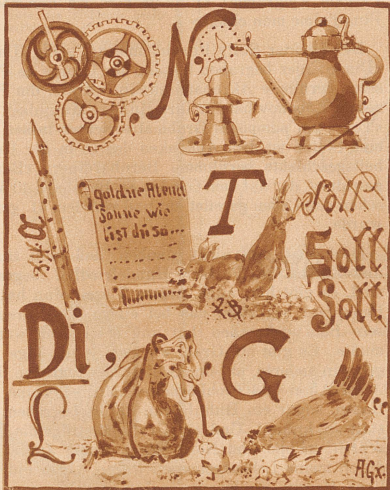 , N,
goldne Abend
Sonne wie
bist du so...
T
Soll
Soll
Soll
Di , G
L
AGx.